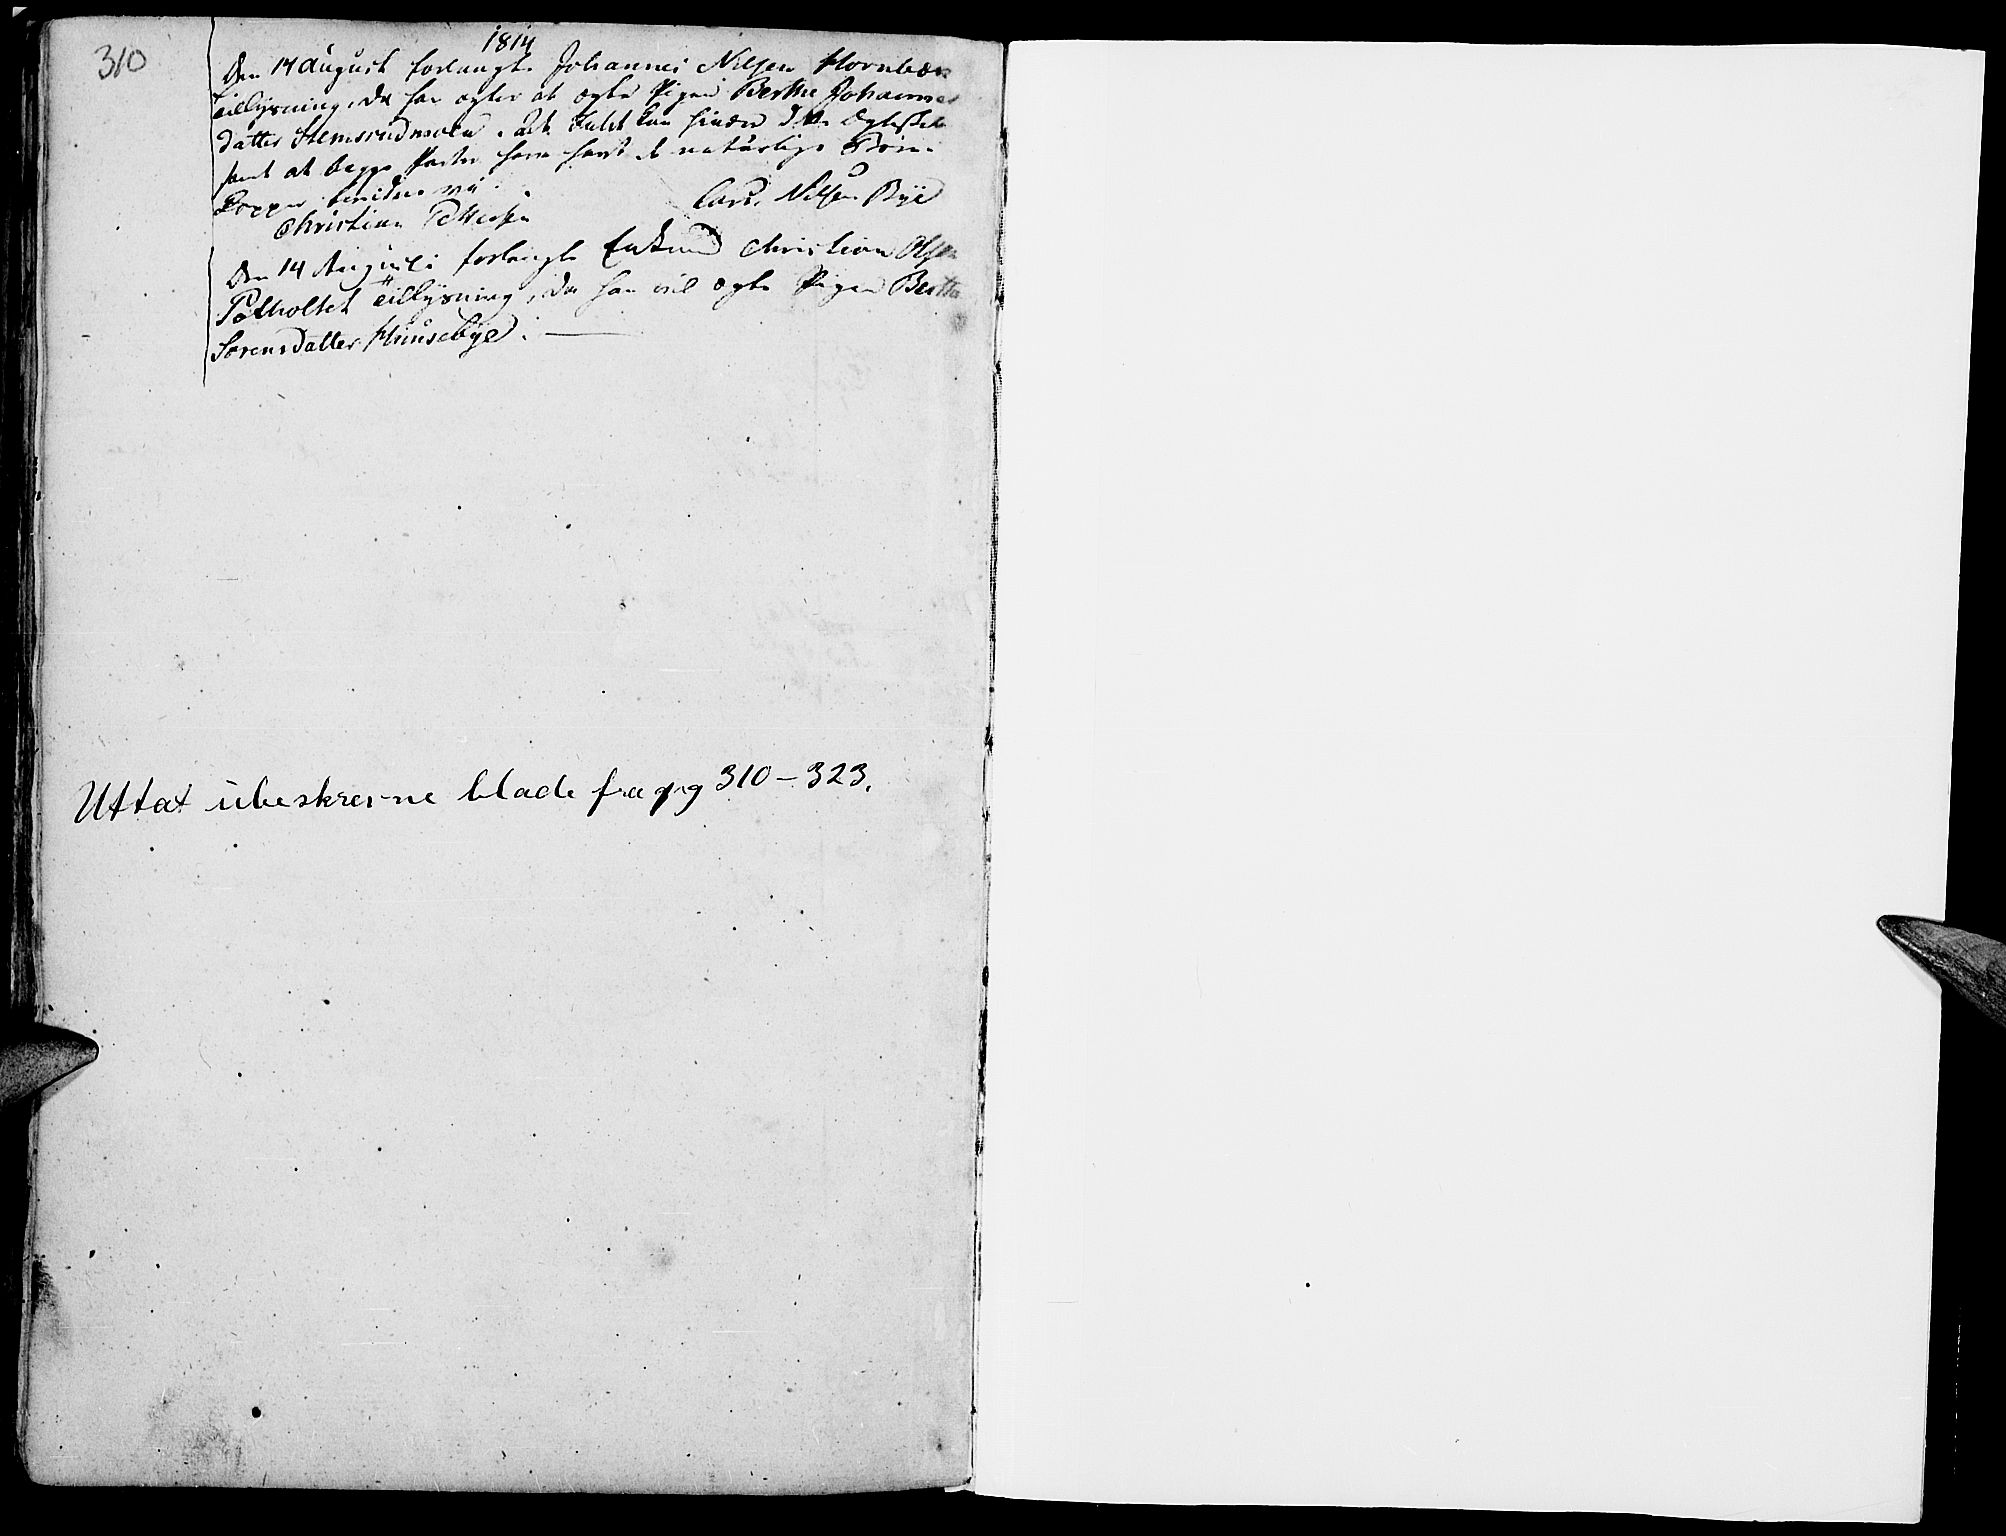 310
1814
Den 14 August forlangte Johannes Nilsen Hornbæk
Tillysning, da han agter at ægte Pigen Berthe Johannes
datter Stemsrudmoen. At Intet kan hindre dette Ægteskab
samt at begge Parter have havt de naturlige Børne
kopper bevidne vi
Christian Pettersen Lars Nilsen Bye
Den 14 August forlangte Enkemand Christian Olsen
Potholtet Tillysning, da han vil ægte Pigen Berthe
Sørensdatter Huusebye.
Uttat ubeskrevne blade fra pg 310-323.